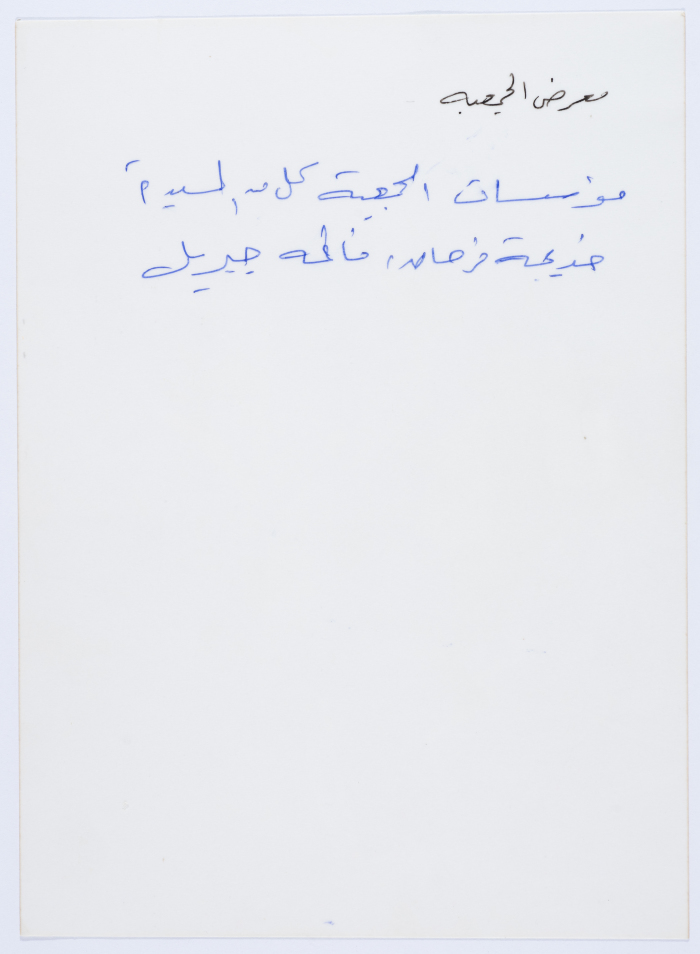 معرض الجمعية
مؤسسات الجمعية كل من السيدة
خديجة فرحان، فاطمة جبريل